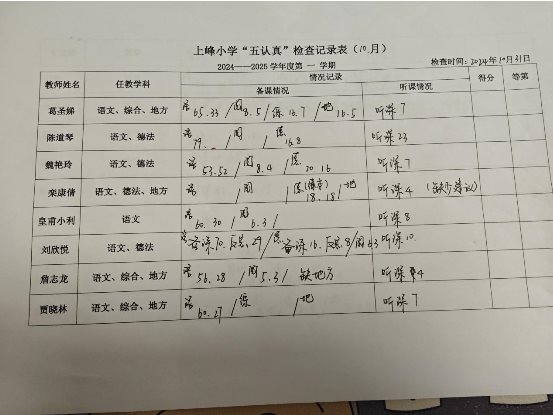 上峰小学“五认真”检查记录表（10月）
2024——2025学年度第 一 学期 检查时间：2024年10月31日
教师姓名 任教学科 情况记录 得分 等第
备课情况 听课情况
葛圣娣 语文、综合、地方 语 65.33 / 周 8.5 / 综 16.7 / 地 16.5 听课 7
陈道琴 语文、德法 语 79. 周 / 德 16.8 听课 23
魏艳玲 语文、德法 语 53.52 / 周 8.4 / 德 20.16 听课 7
栾康倩 语文、德法、地方 语 / 周 / 德 18.18 / 地 听课 4
皇甫小利 语文 语 60.30 / 周 6.3 / 听课 8
刘欣悦 语文、德法 语 备课70.反思.29 / 德 备课16.反思8 / 周 6.3 听课 10.
詹志龙 语文、综合、地方 语 56.28 / 周 5.3 / 缺地方 听课 4
贾晓林 语文、综合、地方 语 60.27 / 综 / 地 听课 7